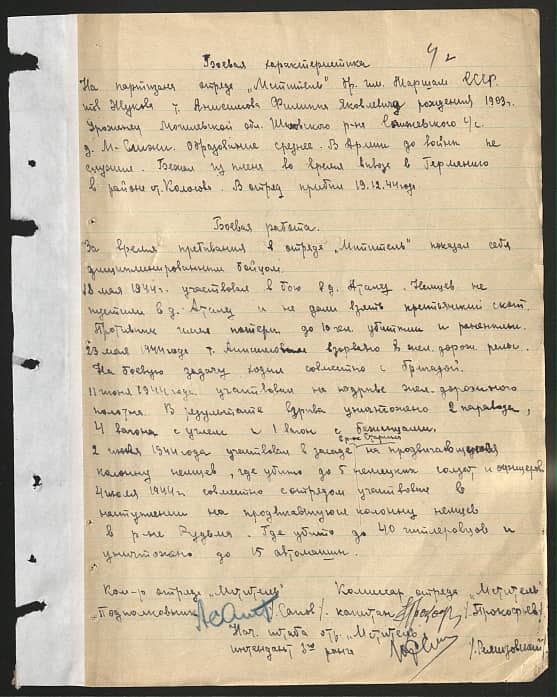 Боевая характеристика
На партизана отряда „Мститель" бр. им. Маршала СССР
тов Жукова т. Анисимова Филиппа Яковлевича рождения 1903 г.
Урожинец Могилевской обл. Шкловского р-на с/с.
д. М- Образование среднее. В Армии до войны не
служил. Бежал из плена во время вывоза в Германию
в районе ст. Колосово. В отряд прибыл 19.12.44 года
Боевая работа.
За время пребывания в отряде „Мститель" показал себя
дисциплинированным бойцом.
18 мая 1944 г. участвовал в бою в д. Аталез. Немцев не
пустили в д. и не дали взять крестьянский скот.
Противник имел потери до 10 чел. убитыми и ранеными.
23 мая 1944 года т. Анисимовым взорвано 2 жел. дорож. рельс.
На боевую задачу ходил совместно с бригадой.
11 июня 1944 года участвовал на подрыве жел. дорожного
полотна. В результате взрыва уничтожено 2 паравоза,
4 вагона с углем и 1 вагон с
2 июля 1944 года участвовал в засаде на продвигающуюся
колонну немцев, где убито до 5 немецких солдат и офицеров
4 июля 1944 г. совместно с отрядом участвовал в
наступлении на продвигающуюся колонну немцев
в р-не Рудьмя. Где убито до 40 гитлеровцев и
уничтожено до 15 автомашин.
Ком-р отряда „Мститель" Комиссар отряда „Мститель"
Подполковник /Сапов/. капитан /Прокофьев/
Нач. штаба отр. „Мститель
интендант 3го ранга